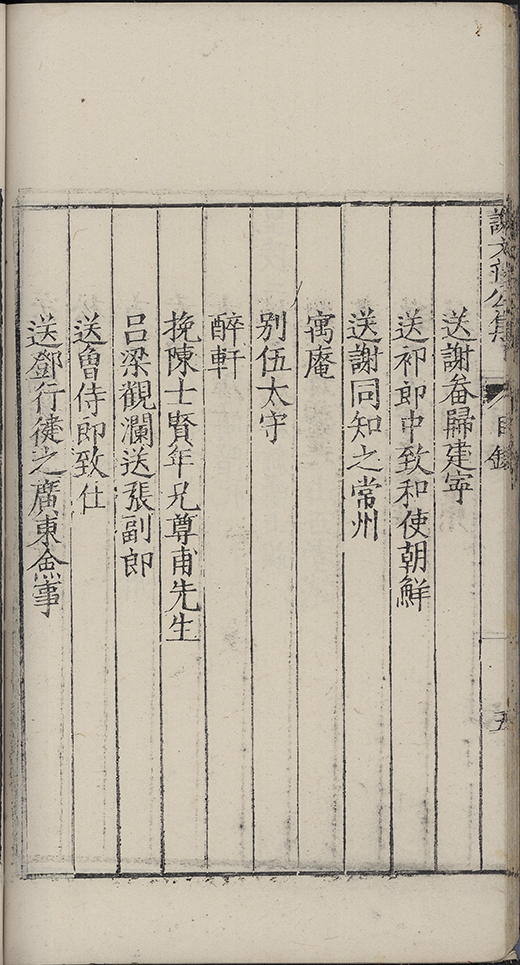 謝文莊公集 目錄 五
送謝畚歸建寧
送祁郎中致和使朝鮮
送謝同知之常州
寓庵
別伍太守
醉軒
挽陳士賢年兄尊甫先生
呂梁觀瀾送張副郎
送魯侍郎致仕
送鄧行健之廣東僉事